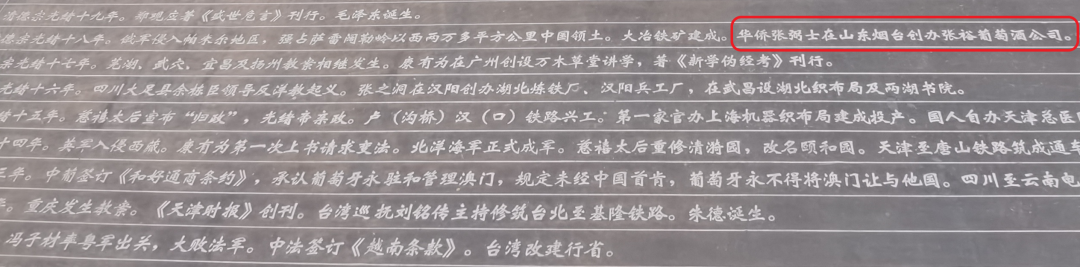 清德宗光绪十九年。郑观应著《盛世危言》刊行。毛泽东诞生。
德宗光绪十八年。俄军侵入帕米尔地区，强占萨雷阔勒岭以西两万多平方公里中国领土。大冶铁矿建成。华侨张弼士在山东烟台创办张裕葡萄酒公司。
宗光绪十七年。芜湖、武穴、宜昌及扬州教案相继发生。康有为在广州创设万木草堂讲学，著《新学伪经考》刊行。
光绪十六年。四川大足县余栋臣领导反洋教起义。张之洞在汉阳创办湖北炼铁厂、汉阳兵工厂，在武昌设湖北织布局及两湖书院。
绪十五年。慈禧太后宣布“归政”，光绪帝亲政。卢（沟桥）汉（口）铁路兴工。第一家官办上海机器织布局建成投产。国人自办天津总医
十四年。英军入侵西藏。康有为第一次上书请求变法。北洋海军正式成军。慈禧太后重修清漪园，改名颐和园。天津至唐山铁路筑成通车
三年。中葡签订《和好通商条约》，承认葡萄牙永驻和管理澳门，规定未经中国首肯，葡萄牙永不得将澳门让与他国。四川至云南电
。重庆发生教案。《天津时报》创刊。台湾巡抚刘铭传主持修筑台北至基隆铁路。朱德诞生。
冯子材率粤军出关，大败法军。中法签订《越南条款》。台湾改建行省。